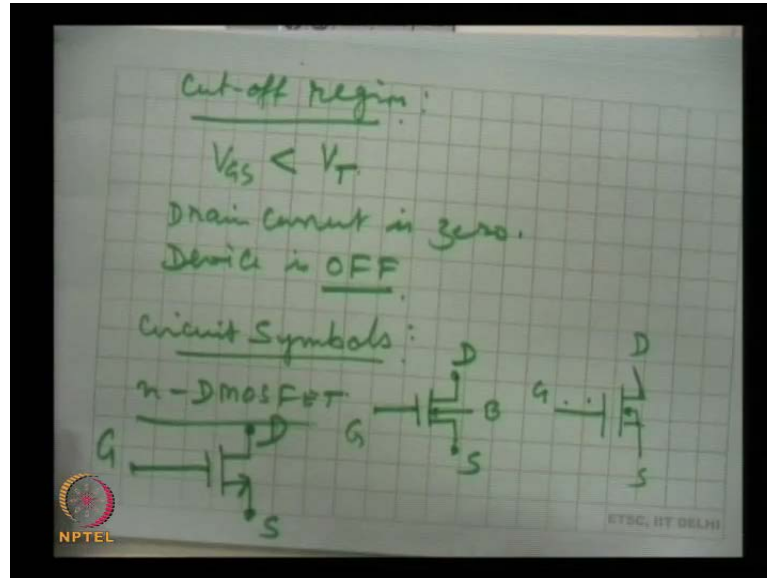 Cut-off region:
V_GS < V_T
Drain Current is zero.
Device is OFF
Circuit Symbols:
n-DMOSFET
G D S
G D B S
G D S
NPTEL
ETSC, IIT DELHI